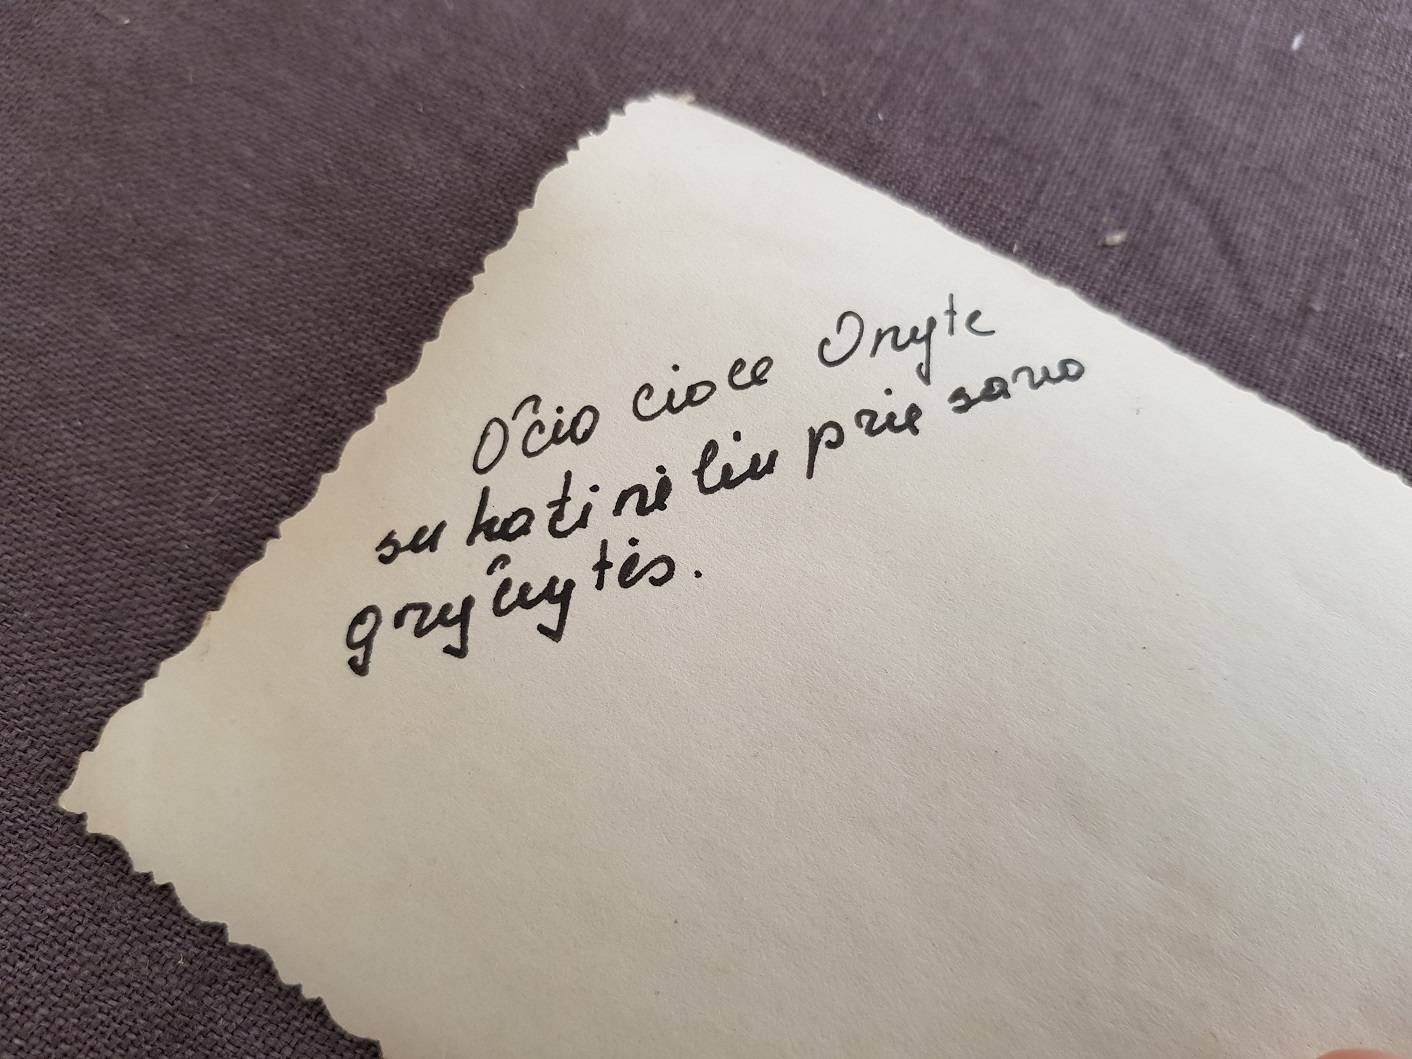 Očio cioce Onyte
su kotinėliu prie savo
gryčiytės.